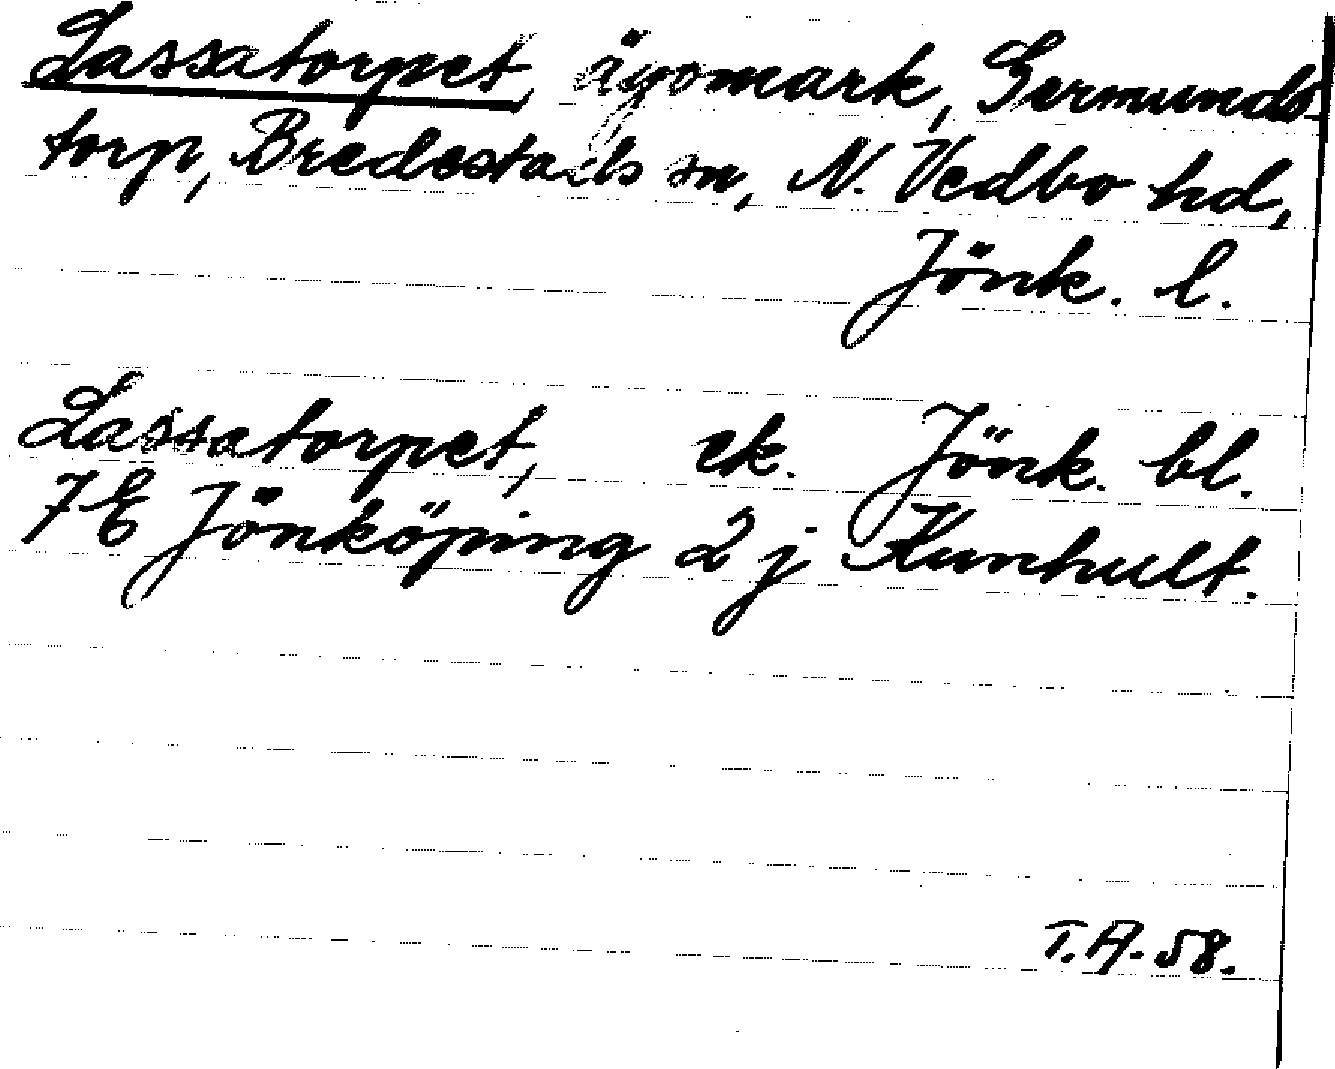 Lassatorpet, ägomark, Germunds-
torp, Bredestads sn, N. Vedbo hd,
Jönk. l.
Lassatorpet, ek. Jönk. bl.
7E Jönköping 2 j Kunhult.
T.A. 58.